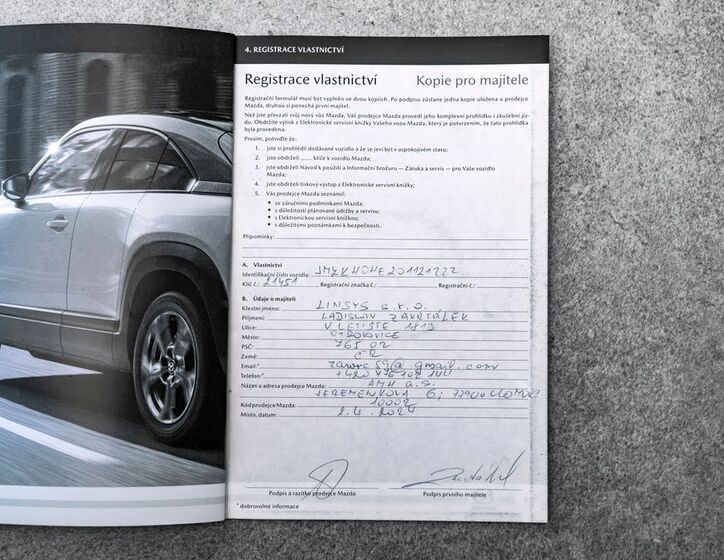 4. REGISTRACE VLASTNICTVÍ
Registrace vlastnictví Kopie pro majitele
Registrační formulář musí být vyplněn ve dvou kopiích. Po podpisu zůstane jedna kopie uložena u prodejce
Mazda, druhou si ponechá první majitel.
Než jste převzali svůj nový vůz Mazda, Váš prodejce Mazda provedl jeho komplexní prohlídku i zkušební jíz-
du. Obdržíte výtisk z Elektronické servisní knížky Vašeho vozu Mazda, který je potvrzením, že tato prohlídka
byla provedena.
Prosím, potvrďte že:
1. jste si prohlédli dodávané vozidlo a že se jeví být v uspokojivém stavu;
2. jste obdrželi ...... klíče k vozidlu Mazda;
3. jste obdrželi Návod k použití a Informační brožuru — Záruka a servis — pro Vaše vozidlo
Mazda;
4. jste obdrželi tiskový výstup z Elektronické servisní knížky;
5. Vás prodejce Mazda seznámil:
• se záručními podmínkami Mazda;
• s důležitostí plánované údržby a servisu;
• s Elektronickou servisní knížkou;
• s důležitými poznámkami k bezpečnosti.
Připomínky:
A. Vlastnictví
Identifikační číslo vozidla:
Klíč č.: 21451 Registrační značka č.: Registrační č.:
B. Údaje o majiteli
Křestní jméno: LINSYS s.r.o.
Příjmení: LADISLAV ZAVRTÁLEK
Ulice: LETIŠTĚ 1819
Město: OTROKOVICE
PSČ: 765 02
Země: ČR
Email:* @gmail.com
Telefon:* +420
Název a adresa prodejce Mazda: AMH a.s.
JEREMENKOVA 6, 77900 OLOMOUC
Kód prodejce Mazda: 10002
Místo, datum: 2.4. 2024
Podpis a razítko prodejce Mazda Podpis prvního majitele
* dobrovolné informace